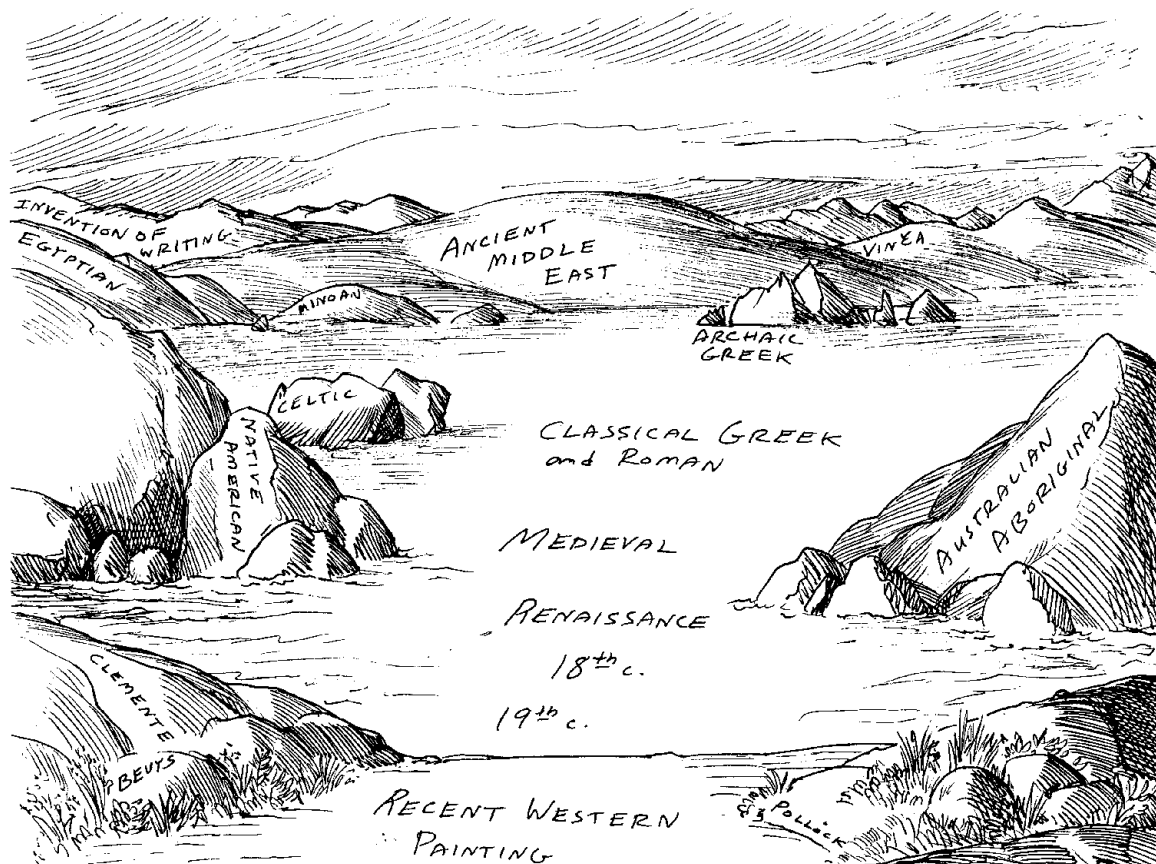 INVENTION OF
WRITING
EGYPTIAN
ANCIENT
MIDDLE
EAST
VINČA
MINOAN
ARCHAIC
GREEK
CELTIC
NATIVE
AMERICAN
CLASSICAL GREEK
and ROMAN
AUSTRALIAN
ABORIGINAL
MEDIEVAL
RENAISSANCE
18th c.
19th c.
CLEMENTE
BEUYS
RECENT WESTERN
PAINTING
POLLOCK